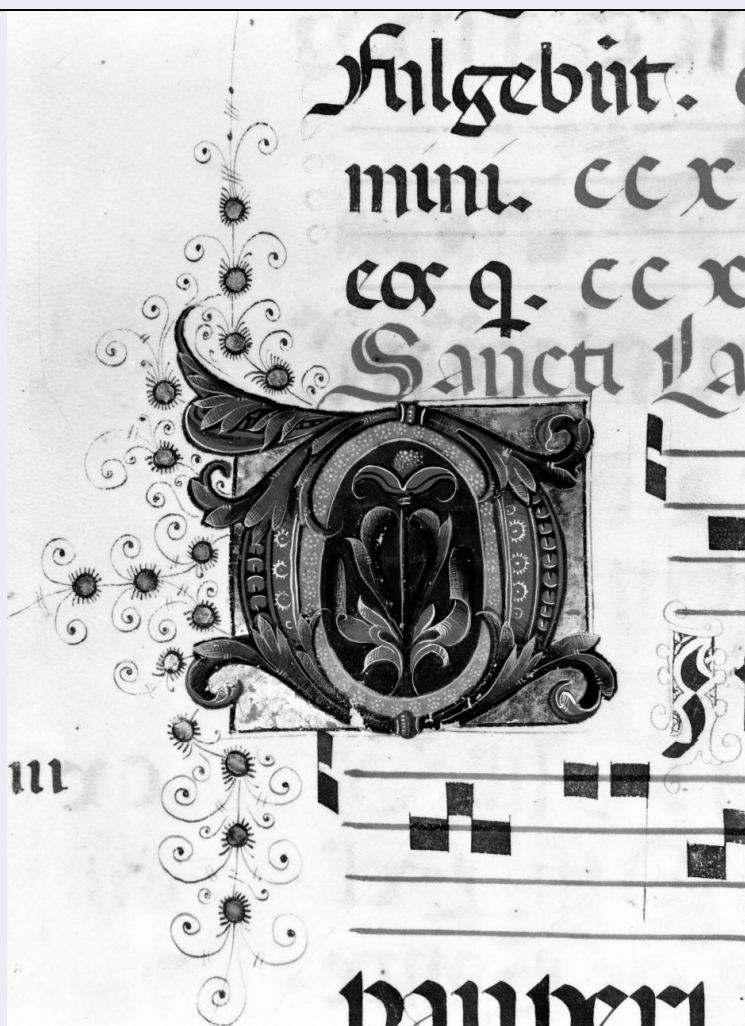 Fulgebũt.
mini. cc x
eos q. cc x
Sancti La
D
III
pauperi